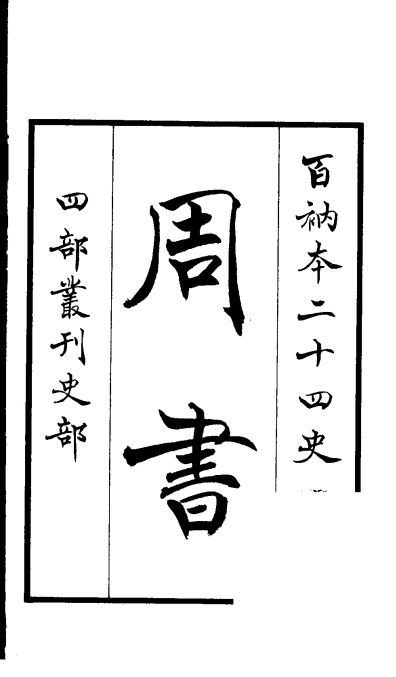 百衲本二十四史
周書
四部叢刊史部